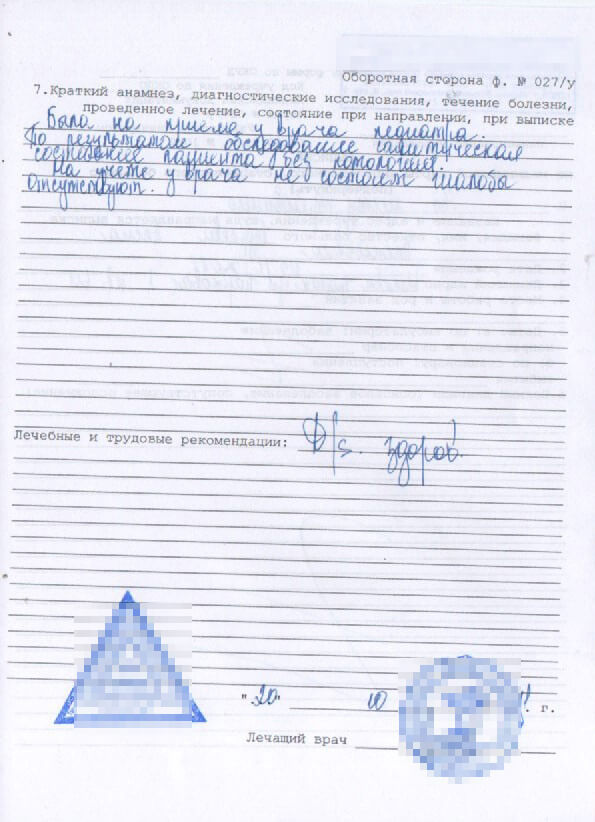 Оборотная сторона ф. № 027/у
7.Краткий анамнез, диагностические исследования, течение болезни,
проведенное лечение, состояние при направлении, при выписке
Была на приёме у врача педиатра.
По результатам обследование
состояние пациента без патологий.
На учете у врача не состоит жалобы
отсутствуют.
Лечебные и трудовые рекомендации: D/s. здоров.
"20" 10 г.
Лечащий врач